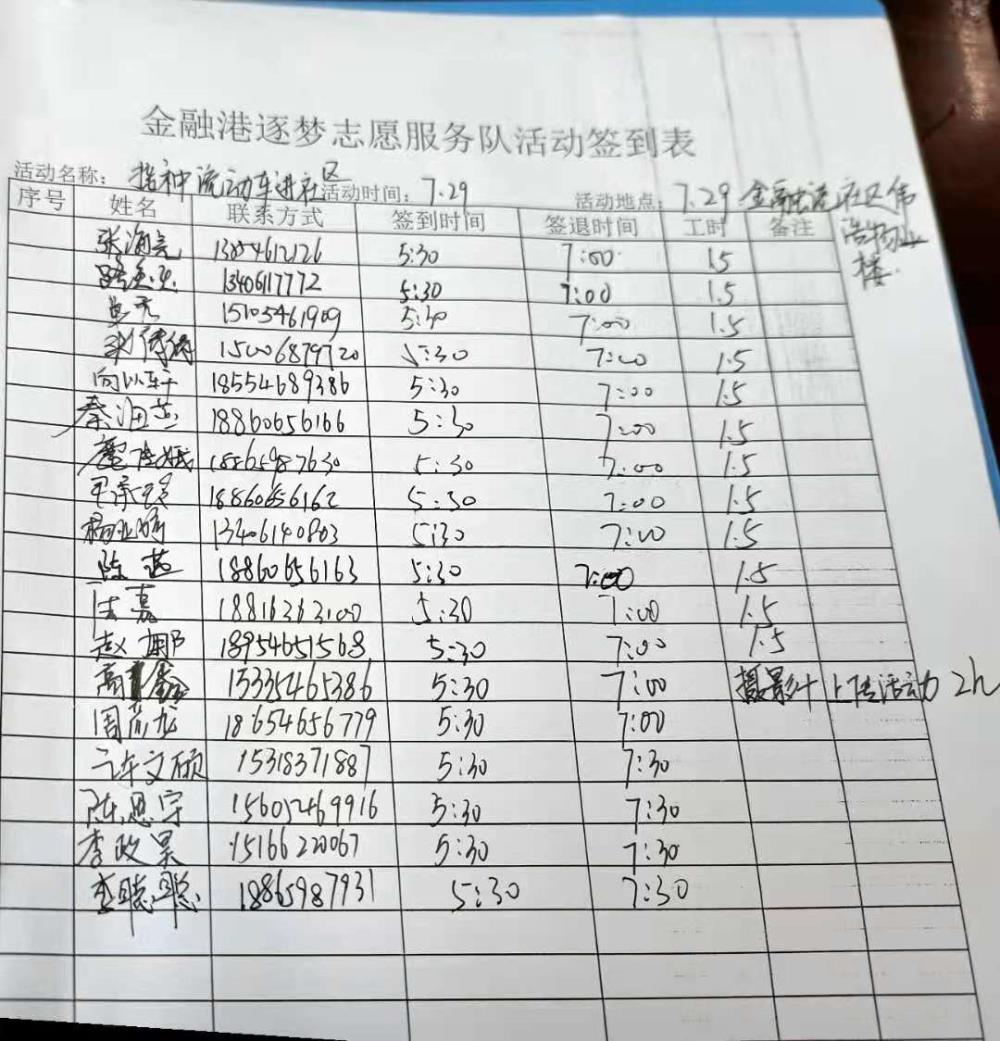 金融港逐梦志愿服务队活动签到表
活动名称: 接种流动车进社区 活动时间: 7.29 活动地点: 7.29 金融港社区伟浩物业楼
序号 姓名 联系方式 签到时间 签退时间 工时 备注
张海亮 5:30 7:00 1.5
13406117772 5:30 7:00 1.5
15105461909 5:30 7:00 1.5
张倩倩 15006879720 5:30 7:00 1.5
18554689386 5:30 7:00 1.5
秦海燕 18860656166 5:30 7:00 1.5
18865987630 5:30 7:00 1.5
18860656162 5:30 7:00 1.5
杨业娇 13406140803 5:30 7:00 1.5
陈燕 18860656163 5:30 7:00 1.5
18816263100 5:30 7:00 1.5
赵娜 18954651568 5:30 7:00 1.5
15335465386 5:30 7:00 摄影+上传活动 2h
周彦龙 18654656779 5:30 7:00
许文硕 15318371887 5:30 7:30
陈思宇 15605469916 5:30 7:30
李政昊 15166220067 5:30 7:30
李聪聪 18865987931 5:30 7:30